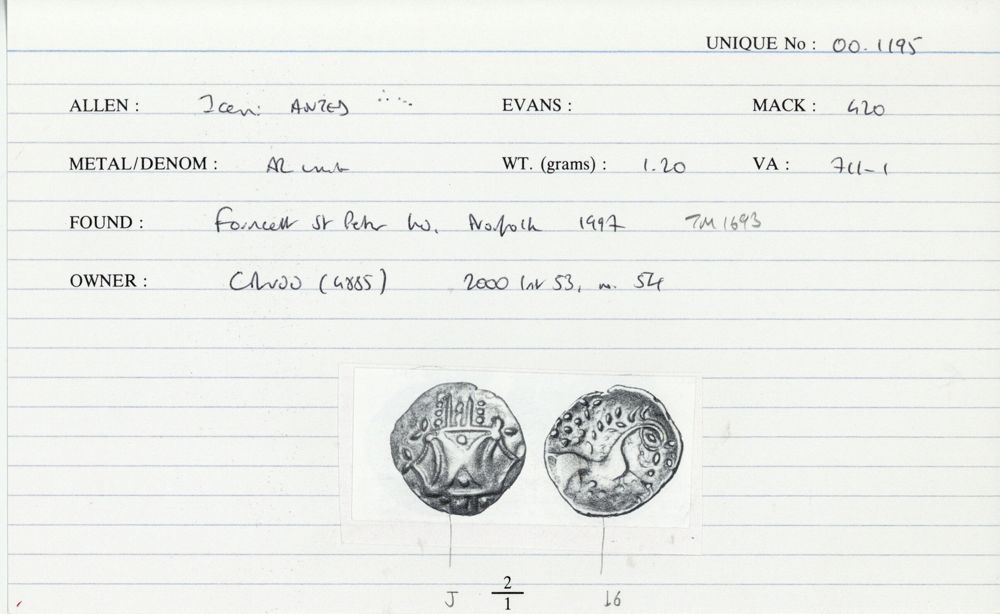 UNIQUE No : 00.1195
ALLEN : Iceni ANTED EVANS : MACK : 420
METAL/DENOM : AR unit WT. (grams) : 1.20 VA : 711-1
FOUND : Forncett St Peter Norfolk 1997 TM 1693
OWNER : 2000 53, 54
J 2/1 16